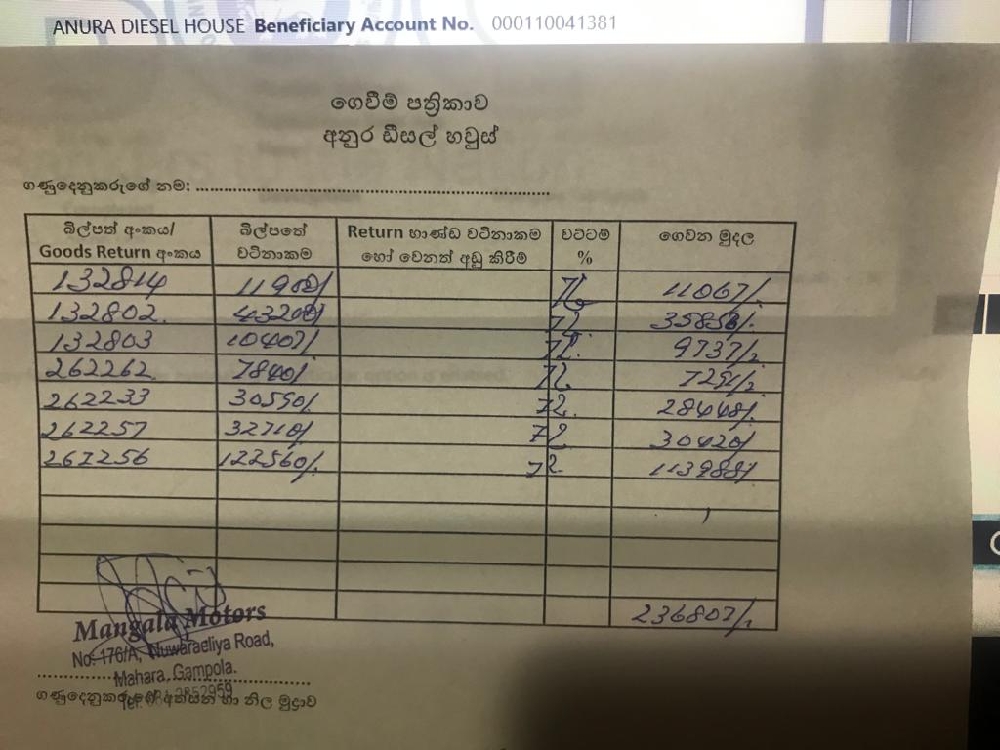 ANURA DIESEL HOUSE Beneficiary Account No. 000110041381
ගෙවීම් පත්‍රිකාව
අනුර ඩීසල් හවුස්
ගණුදෙනුකරුගේ නම: ........................................................................
බිල්පත් අංකය/ Goods Return අංකය බිල්පතේ වටිනාකම Return භාණ්ඩ වටිනාකම හෝ වෙනත් අඩු කිරීම් වට්ටම් % ගෙවන මුදල
132814 11900/ 7% 11067/.
132802. 43200/ 7%
132803 10407/ 7%. 9737/.
262262 7840/ 7% 7291/.
262233 30590/ 7%. 28448/.
262257 32710/ 7% 30420/
262256 122560/. 7% 113988/
236807/.
Mangala Motors
No: 176/A, Nuwaraeliya Road,
Mahara, Gampola.
ගණුදෙනුකරුගේ අත්සන හා නිල මුද්‍රාව